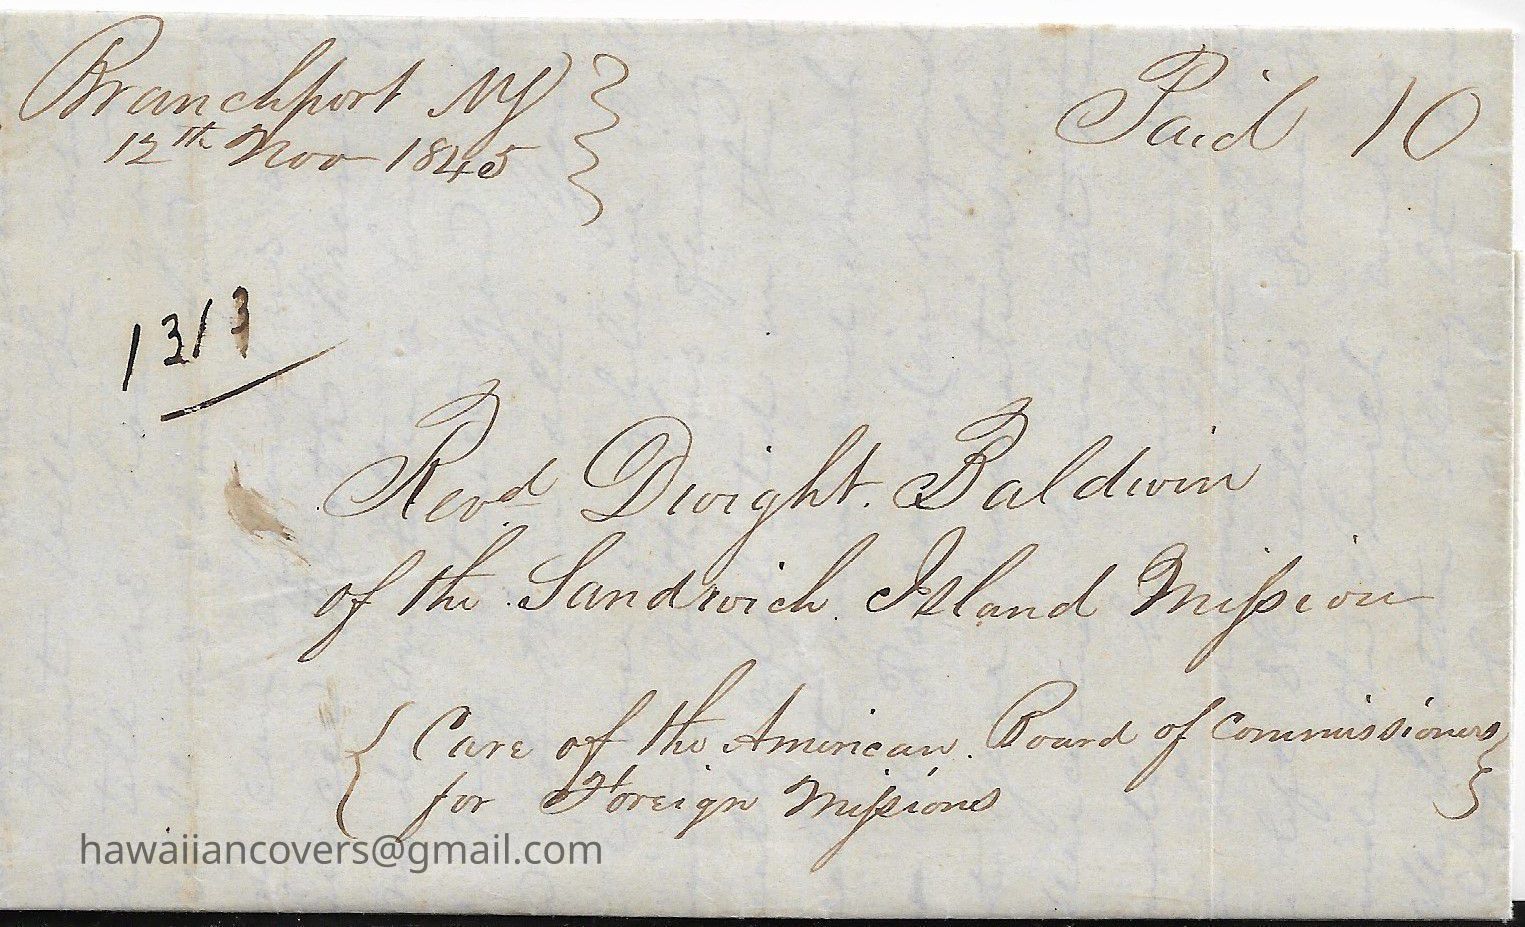 Branchport NY
12th Nov 1845
Paid 10
1313
Revd Dwight Baldwin
of the Sandwich Island Mission
Care of the American Board of Commissioners
for Foreign Missions
hawaiiancovers@gmail.com